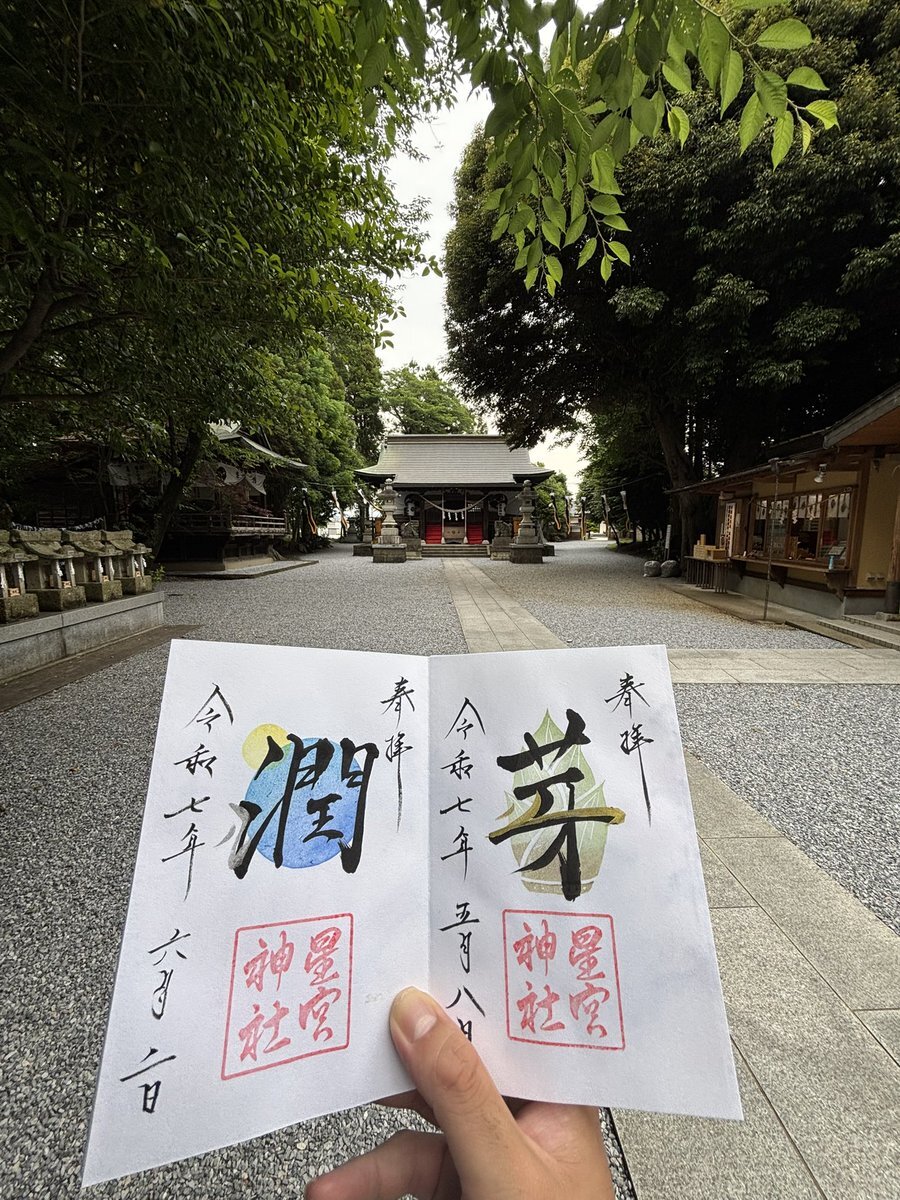 奉拝
芽
令和七年 五月八日
星宮
神社
奉拝
潤
令和七年 六月二日
星宮
神社